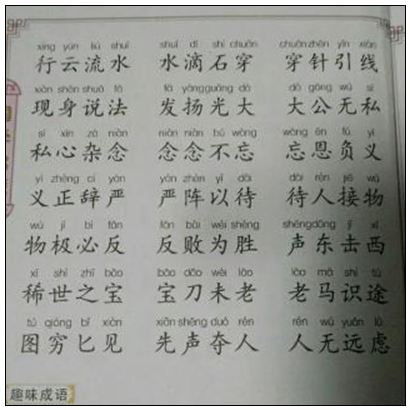 xíng yún liú shuǐ shuǐ dī shí chuān chuān zhēn yǐn xiàn
行云流水 水滴石穿 穿针引线
xiàn shēn shuō fǎ fā yáng guāng dà dà gōng wú sī
现身说法 发扬光大 大公无私
sī xīn zá niàn niàn niàn bú wàng wàng ēn fù yì
私心杂念 念念不忘 忘恩负义
yì zhèng cí yán yán zhèn yǐ dài dài rén jiē wù
义正辞严 严阵以待 待人接物
wù jí bì fǎn fǎn bài wéi shèng shēng dōng jī xī
物极必反 反败为胜 声东击西
xī shì zhī bǎo bǎo dāo wèi lǎo lǎo mǎ shí tú
稀世之宝 宝刀未老 老马识途
tú qióng bǐ xiàn xiān shēng duó rén rén wú yuǎn lǜ
图穷匕见 先声夺人 人无远虑
趣味成语